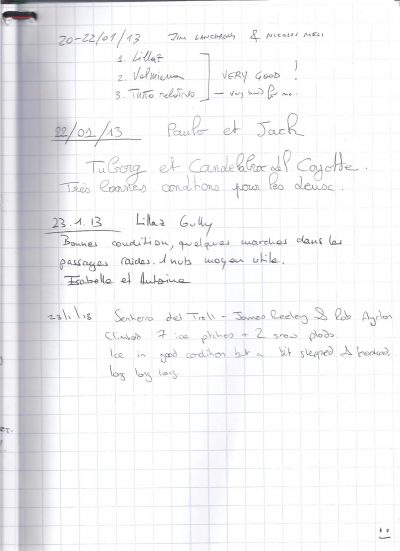 20-22/01/13 JIM & NICOLAS
1. Lillaz
2. Valmiana VERY GOOD !
3. Tutto relativo - very hard for me.
22/01/13 Paulo et Jack
Tuborg et Candelabro del Coyotte.
Très bonnes conditions pour les deux.
23.1.13 Lillaz Gully
Bonnes condition, quelques marches dans les
passages raides. 1 nuts moyen utile.
Isabelle et Antoine
23/1/13 Sentiero dei Troll - James & Rob
Climbed 7 ice pitches + 2 snow plods.
Ice in good condition but a bit stepped & hooked
:)